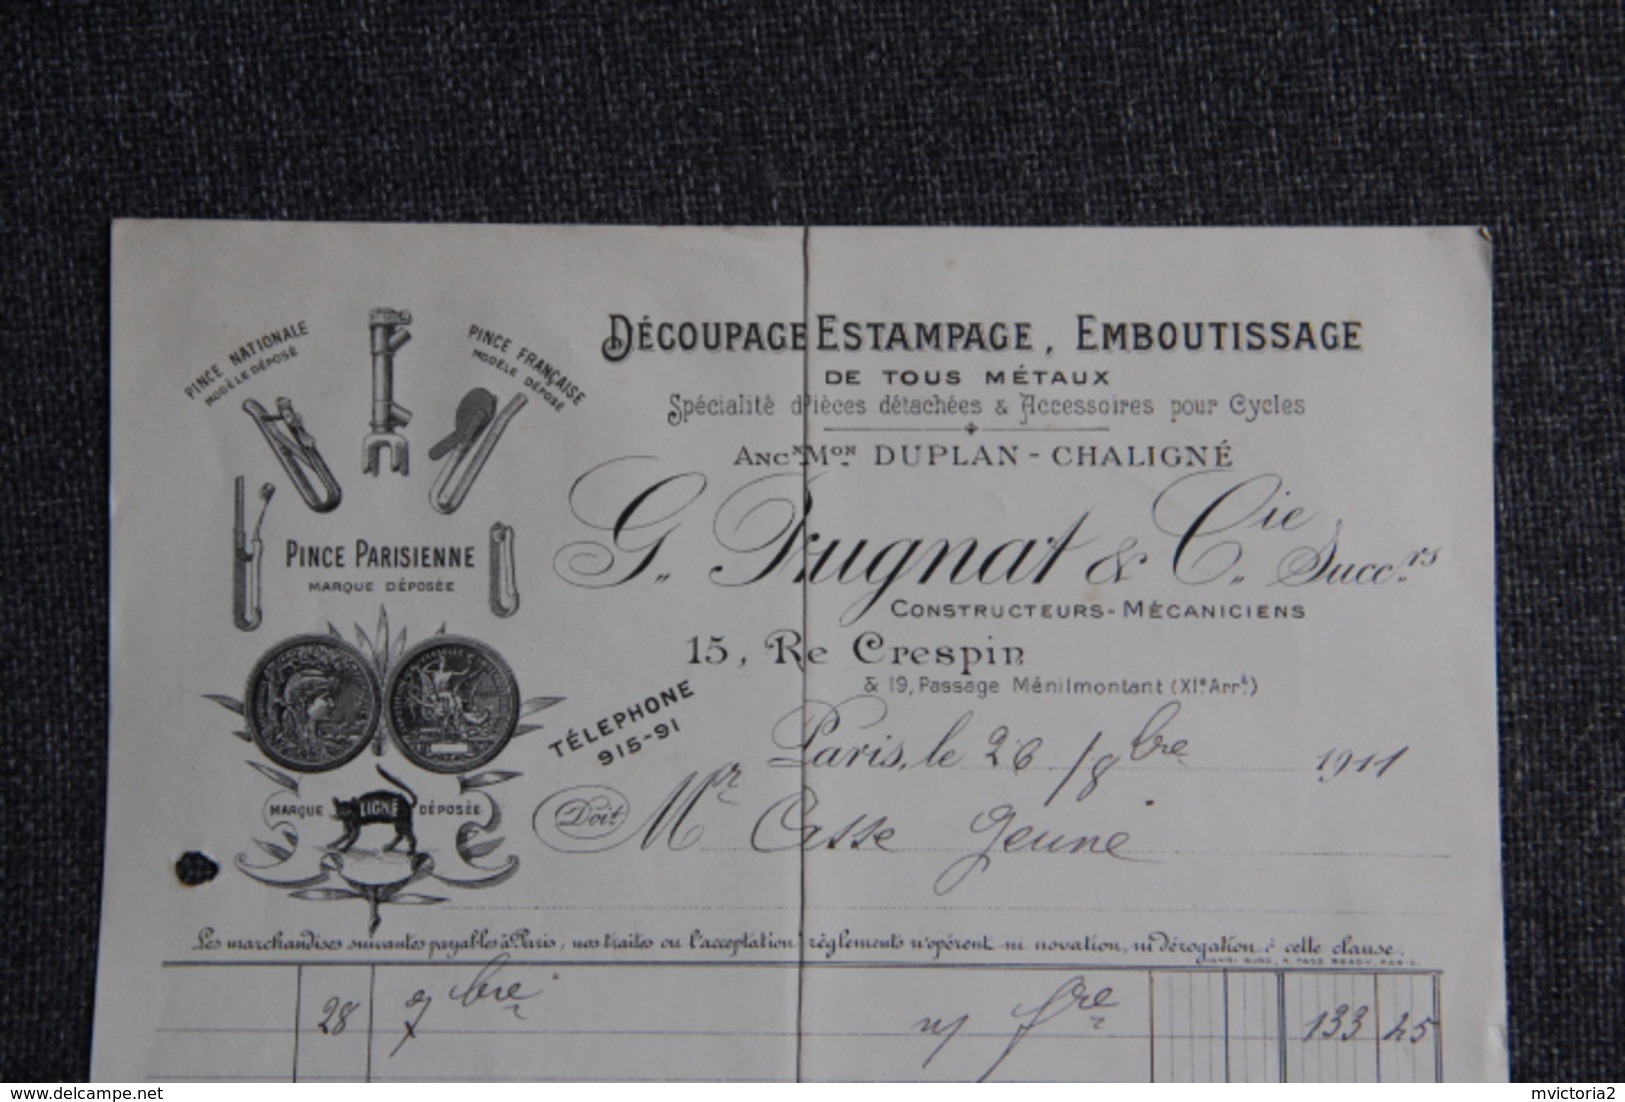 PINCE NATIONALE
MODÈLE DÉPOSÉ
PINCE FRANÇAISE
MODÈLE DÉPOSÉ
PINCE PARISIENNE
MARQUE DÉPOSÉE
MARQUE LIGNÉ DÉPOSÉE
DÉCOUPAGE ESTAMPAGE, EMBOUTISSAGE
DE TOUS MÉTAUX
Spécialité d'Pièces détachées & Accessoires pour Cycles
ANCN MON DUPLAN - CHALIGNÉ
G. Prugnat & Cie Succrs
CONSTRUCTEURS-MÉCANICIENS
15, Re Crespin
& 19, Passage Ménilmontant (XIe Arrt)
TÉLEPHONE
915-91
Paris, le 26 /8bre 1911
Doit Mr Casse Jeune
Les marchandises suivantes payables à Paris, nos traites ou l'acceptation règlements n'opérent ni novation, ni dérogation à cette clause.
28 7bre n/ fre 133 45
delcampe.net
mvictoria2